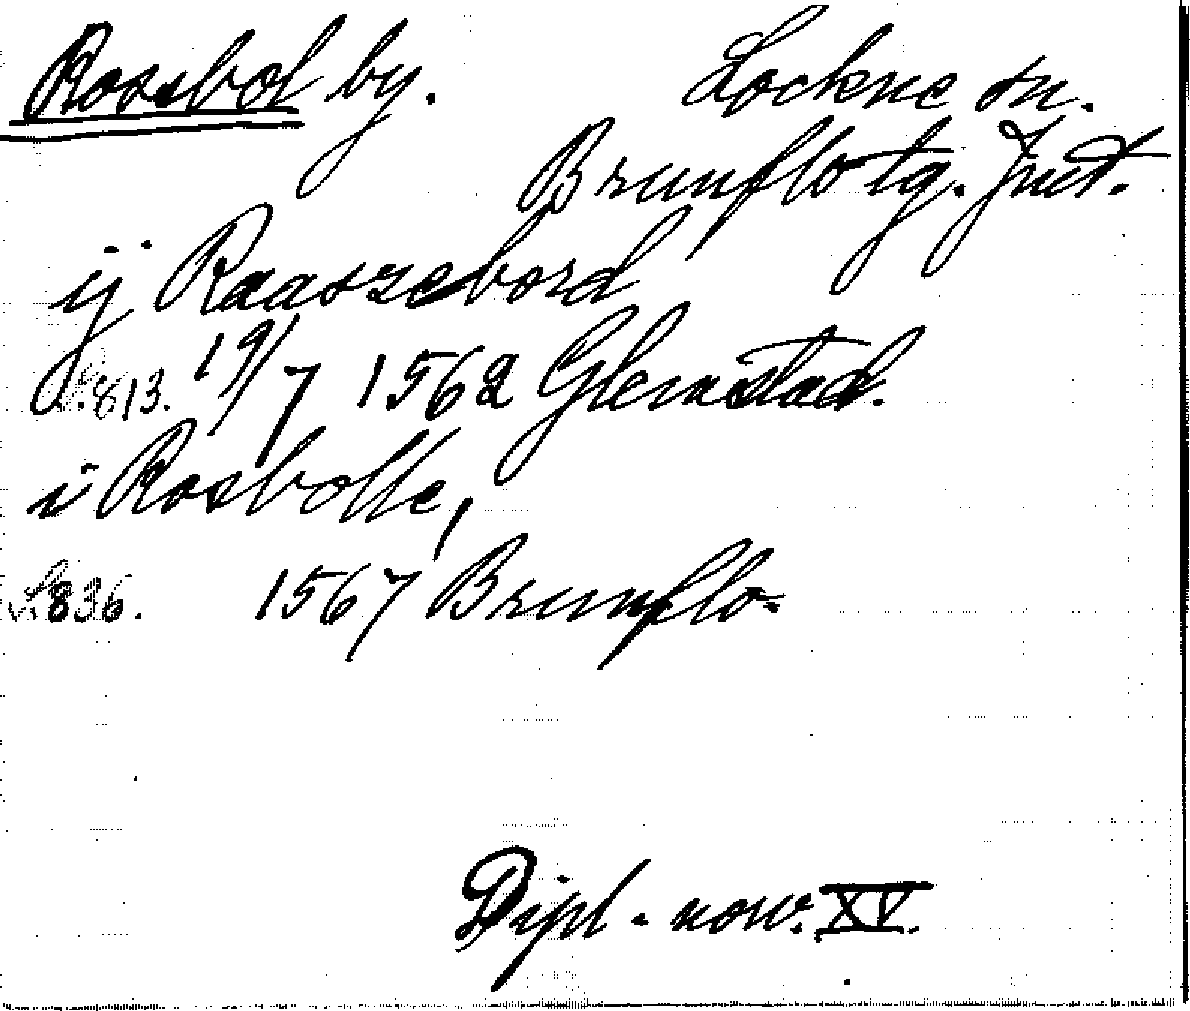 Rossbol by. Lockne sn.
Brunflo tg. Jmt.
ij Raaszebord
S. 813. 19/7 1562 Glemstad.
i Rosbolle,
S. 836. 1567 Brunflo.
Dipl. norv. XV.